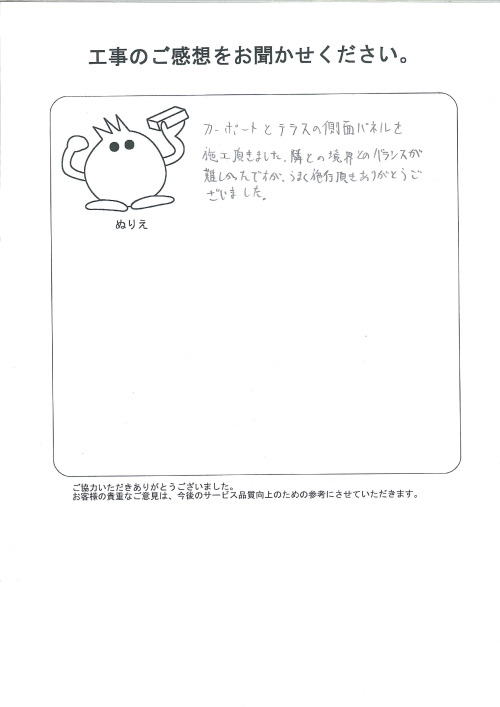 工事のご感想をお聞かせください。
カーポートとテラスの側面パネルを
施工頂きました。隣との境界とのバランスが
難しかったですが、うまく施行頂きありがとうご
ざいました。
ぬりえ
ご協力いただきありがとうございました。
お客様の貴重なご意見は、今後のサービス品質向上のための参考にさせていただきます。